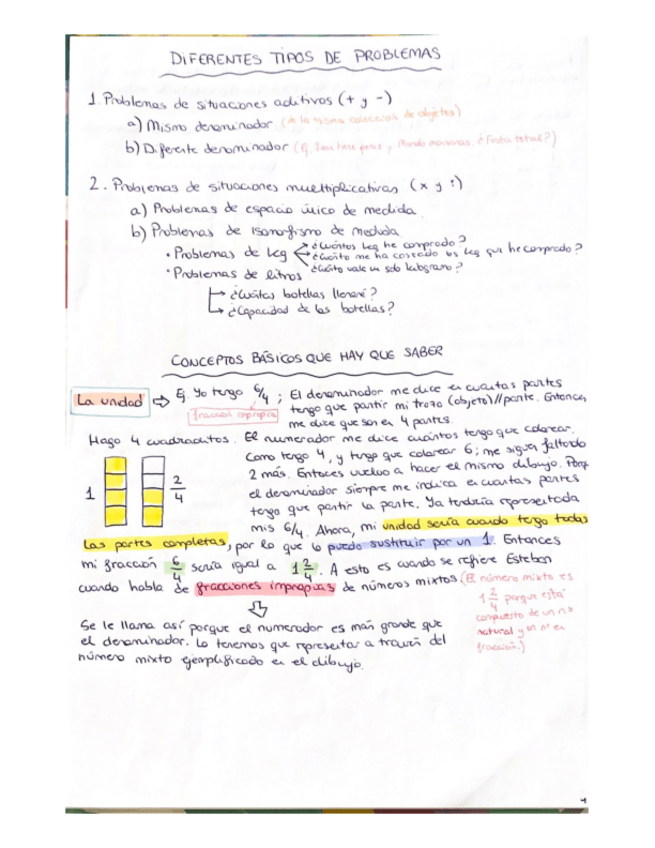 DIFERENTES TIPOS DE PROBLEMAS
1. Problemas de situaciones aditivos (+ y -)
a) Mismo denominador (de la misma colección de objetos)
b) Diferente denominador (Ej. Tena tiene peras y manzanas. ¿Fruta total?)
2. Problemas de situaciones multiplicativas (x y :)
a) Problemas de espacio único de medida
b) Problemas de isomorfismo de medida
• Problemas de kg
¿Cuántos kg he comprado?
¿Cuánto me ha costado los kg que he comprado?
¿Cuánto vale un solo kilogramo?
• Problemas de litros
¿Cuántas botellas llenaré?
¿Capacidad de las botellas?
CONCEPTOS BÁSICOS QUE HAY QUE SABER
La unidad ⇒ Ej. Yo tengo 6/4 ; El denominador me dice en cuantas partes
fracción impropia
tengo que partir mi trozo (objeto)//parte. Entonces,
me dice que son en 4 partes.
Hago 4 cuadraditos. El numerador me dice cuántos tengo que colorear.
Como tengo 4, y tengo que colorear 6; me siguen faltando
2 más. Entonces vuelvo a hacer el mismo dibujo. Porq
el denominador siempre me indica en cuantas partes
tengo que partir la parte. Ya tendría representada
1 2/4
mis 6/4. Ahora, mi unidad sería cuando tengo todas
las partes completas, por lo que lo puedo sustituir por un 1. Entonces
mi fracción 6/4 sería igual a 1 2/4. A esto es cuando se refiere Esteban
cuando habla de fracciones impropias de números mixtos (El número mixto es
1 2/4 porque está
compuesto de un nº
natural y un nº en
fracción.)
Se le llama así porque el numerador es más grande que
el denominador. Lo tenemos que representar a través del
número mixto ejemplificado en el dibujo.
4